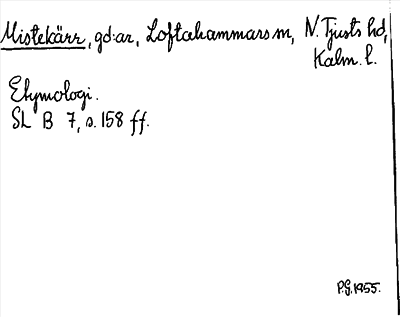 Mistekärr, gd:ar, Loftahammars sn, N. Tjusts hd,
Kalm. l.
Etymologi.
SL B 7, s. 158 ff.
P.G. 1955.